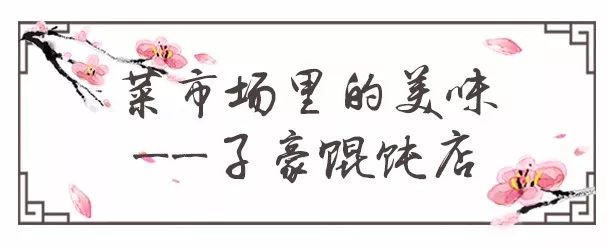 菜市场里的美味
——子豪馄饨店